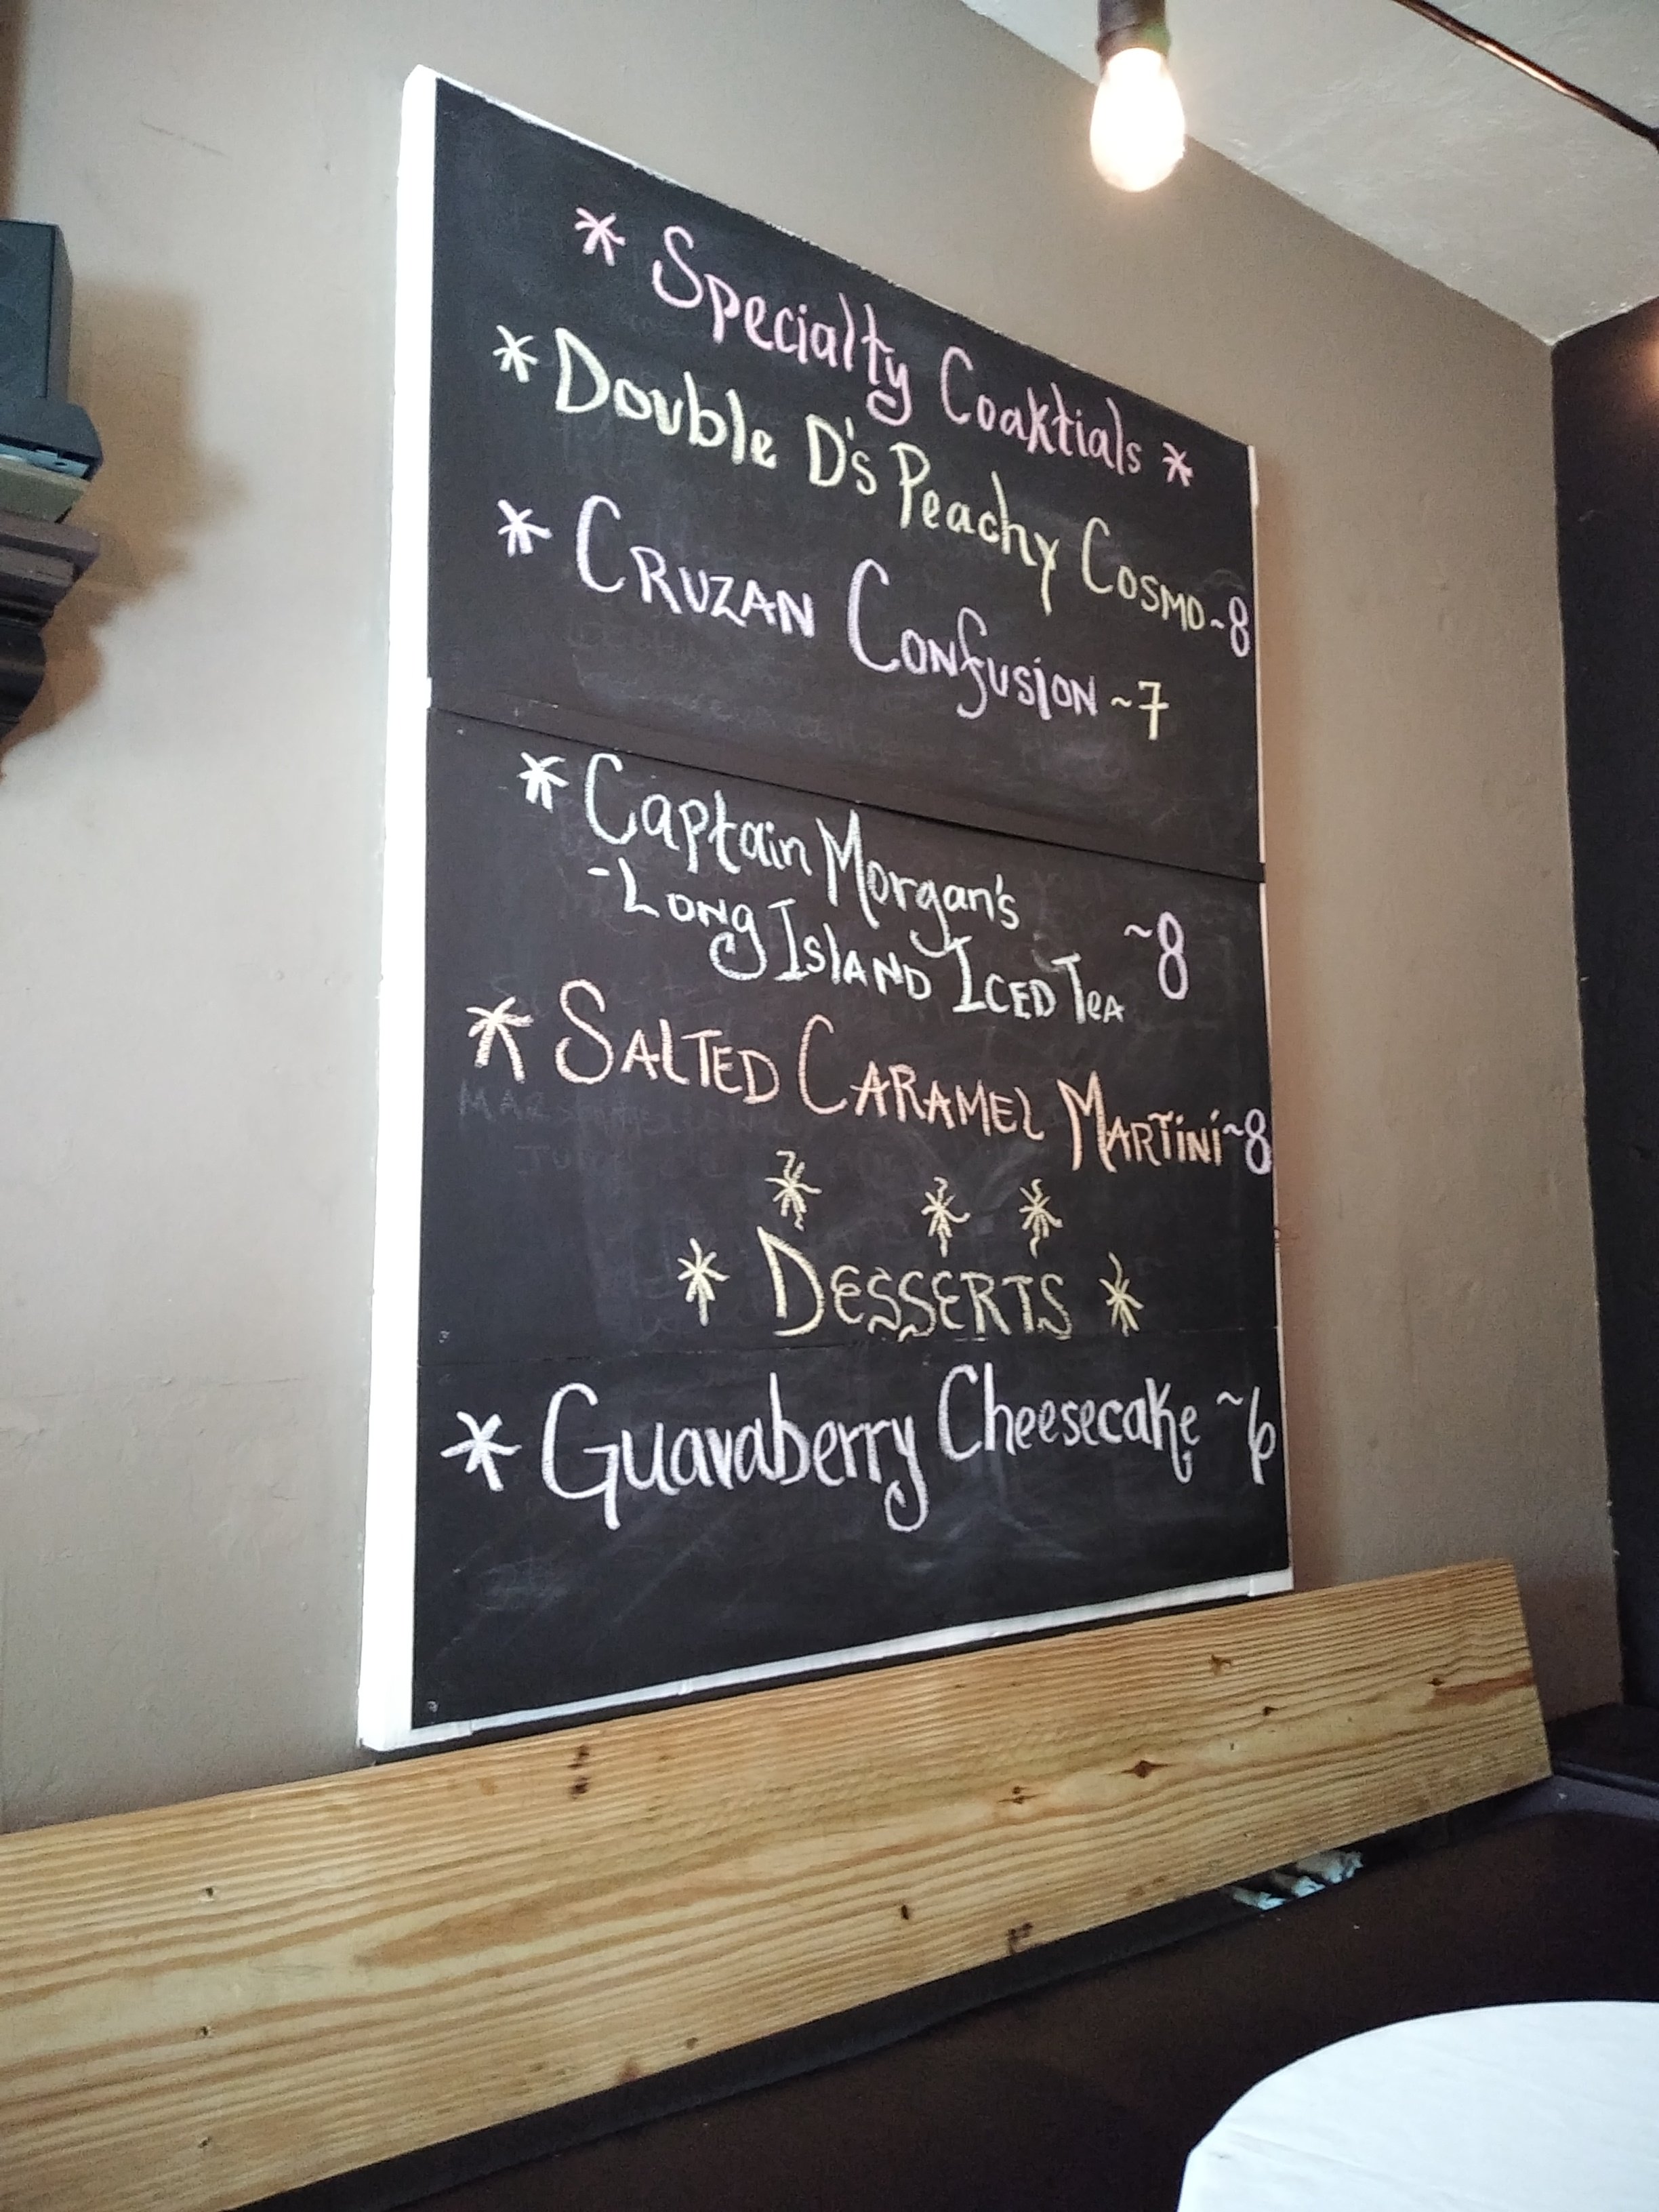 * Specialty Coaktials *
* Double D's Peachy Cosmo ~8
* Cruzan Confusion ~7
* Captain Morgan's
-Long Island Iced Tea ~8
* Salted Caramel Martini ~8
* Desserts *
* Guavaberry Cheesecake ~6